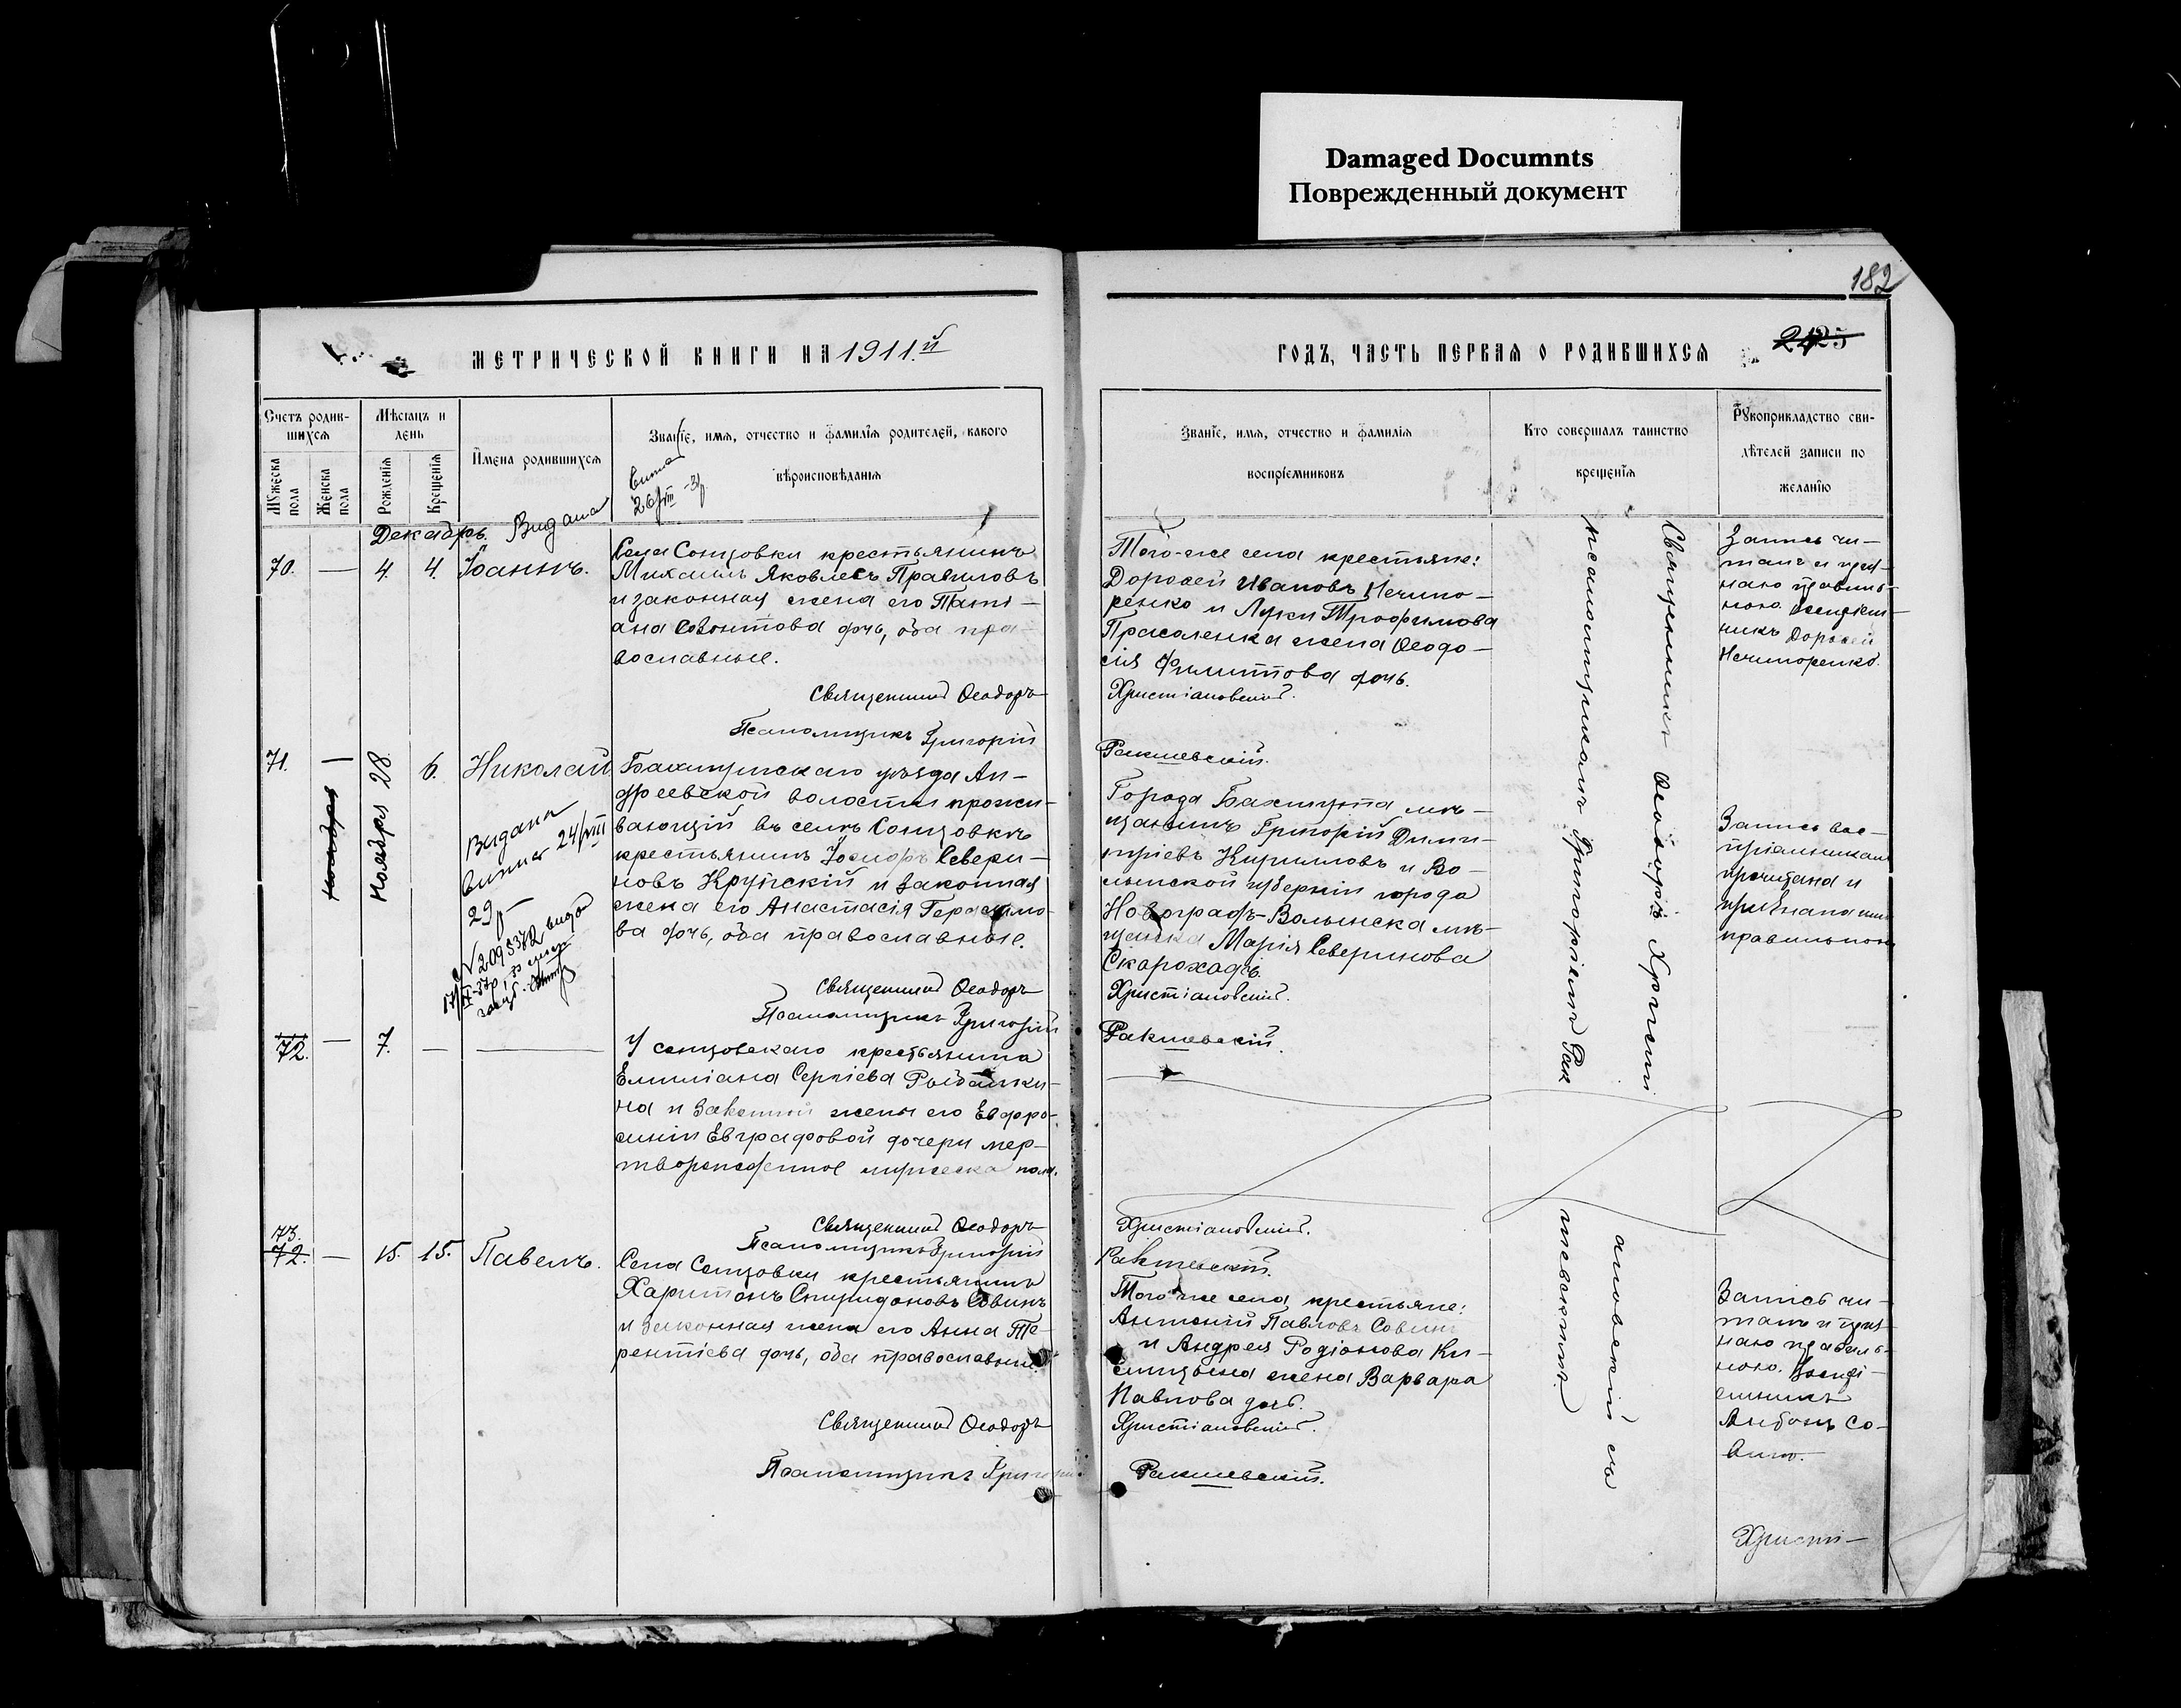 Damaged Documnts
Поврежденный документ
182
МЕТРИЧЕСКОЙ КНИГИ НА 1911.й
ГОДЪ, ЧАСТЬ ПЕРВАЯ О РОДИВШИХСЯ
Счетъ родив-
шихся
Мѣсяцъ и
день
Имена родившихся
Званіе, имя, отчество и фамилія родителей, какого
вѣроисповѣданія
Мужеска
пола
Женска
пола
Рожденія
Крещенія
Званіе, имя, отчество и фамилія
воспріемниковъ
Кто совершалъ таинство
крещенія
Рукоприкладство сви-
дѣтелей записи по
желанію
Декабрь.
Видана
70. — 4. 4. Іоаннъ.
Села Сонцовки крестьянинъ
Михаилъ Яковлевъ Правиловъ
и законная жена его Тати-
ана Леонтова дочь, оба пра-
вославные.
Священникъ Ѳеодоръ
Псаломщикъ Григорій
Того-же села крестьяне:
Дороѳей Ивановъ Нечипо-
ренко и Луки Трофимова
Прасоленка жена Ѳеодо-
сія Филиппова дочь.
Христіановскій.
Ракшевскій.
Запись чи-
талъ и приз-
наю правиль-
ною. Воспріем-
никъ Дороѳей
Нечипоренко.
71. — Ноября 28. 6. Николай
Видана
24/VIII
29р
№ 2095372
Бахмутскаго уѣзда Ан-
дреевской волости прожи-
вающій въ селѣ Сонцовкѣ
крестьянинъ Іосифъ Севери-
новъ Крупскій и законная
жена его Анастасія Герасимо-
ва дочь, оба православные.
Священникъ Ѳеодоръ
Псаломщикъ Григорій
Города Бахмута мѣ-
щанинъ Григорій Дими-
тріевъ Кирилловъ и Во-
лынской губерніи города
Новоградъ-Волынска мѣ-
щанка Марія Северинова
Скароходъ.
Христіановскій.
Ракшевскій.
Запись вос-
пріемникам
прочитана и
признана ими
правильною
72. — 7. — —
У сонцовскаго крестьянина
Емиліана Сергіева Рыбалки-
на и законной жены его Евфро-
синіи Евграфовой дочери мер-
творожденное мужеска пола.
Священникъ Ѳеодоръ
Псаломщикъ Григорій
Христіановскій.
Ракшевскій.
73.
72. — 15. 15. Павелъ.
Села Сонцовки крестьянинъ
Харитонъ Спиридоновъ Совинъ
и законная жена его Анна Те-
рентіева дочь, оба православные.
Священникъ Ѳеодоръ
Псаломщикъ Григорій
Того-же села крестьяне:
Антоній Павловъ Совинъ
и Андрея Родіонова Ки-
жена Варвара
Павлова дочь.
Христіановскій.
Ракшевскій.
Запись чи-
талъ и приз-
наю правиль-
ною. Воспрі-
емникъ
Антонъ Со-
винъ.
Священникъ Ѳеодоръ Христі-
ановскій съ
псаломщикомъ Григоріемъ Рак-
шевскимъ.
Христі-